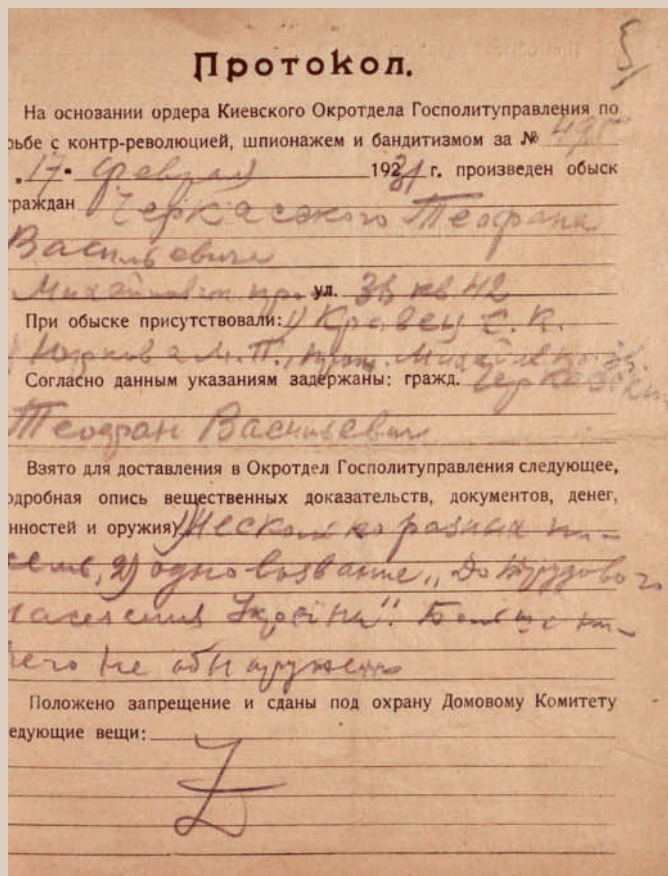 5
Протокол.
На основании ордера Киевского Окротдела Госполитуправления по
рьбе с контр-революцией, шпионажем и бандитизмом за № 495
„17" Февраля 1931 г. произведен обыск
граждан Черкасского Теофана
Васильевича
Михайловск. ул. 38 кв 42
При обыске присутствовали: 1) Кравец С. К.
Юркова М. П.,
Согласно данным указаниям задержаны: гражд. Черкасский
Теофан Васильевич
Взято для доставления в Окротдел Госполитуправления следующее,
одробная опись вещественных доказательств, документов, денег,
нностей и оружия) 1) Несколько разных пи-
сем, 2) одно воззвание „До трудового
населення України". Больше ни-
чего не обнаружено
Положено запрещение и сданы под охрану Домовому Комитету
едующие вещи: Z